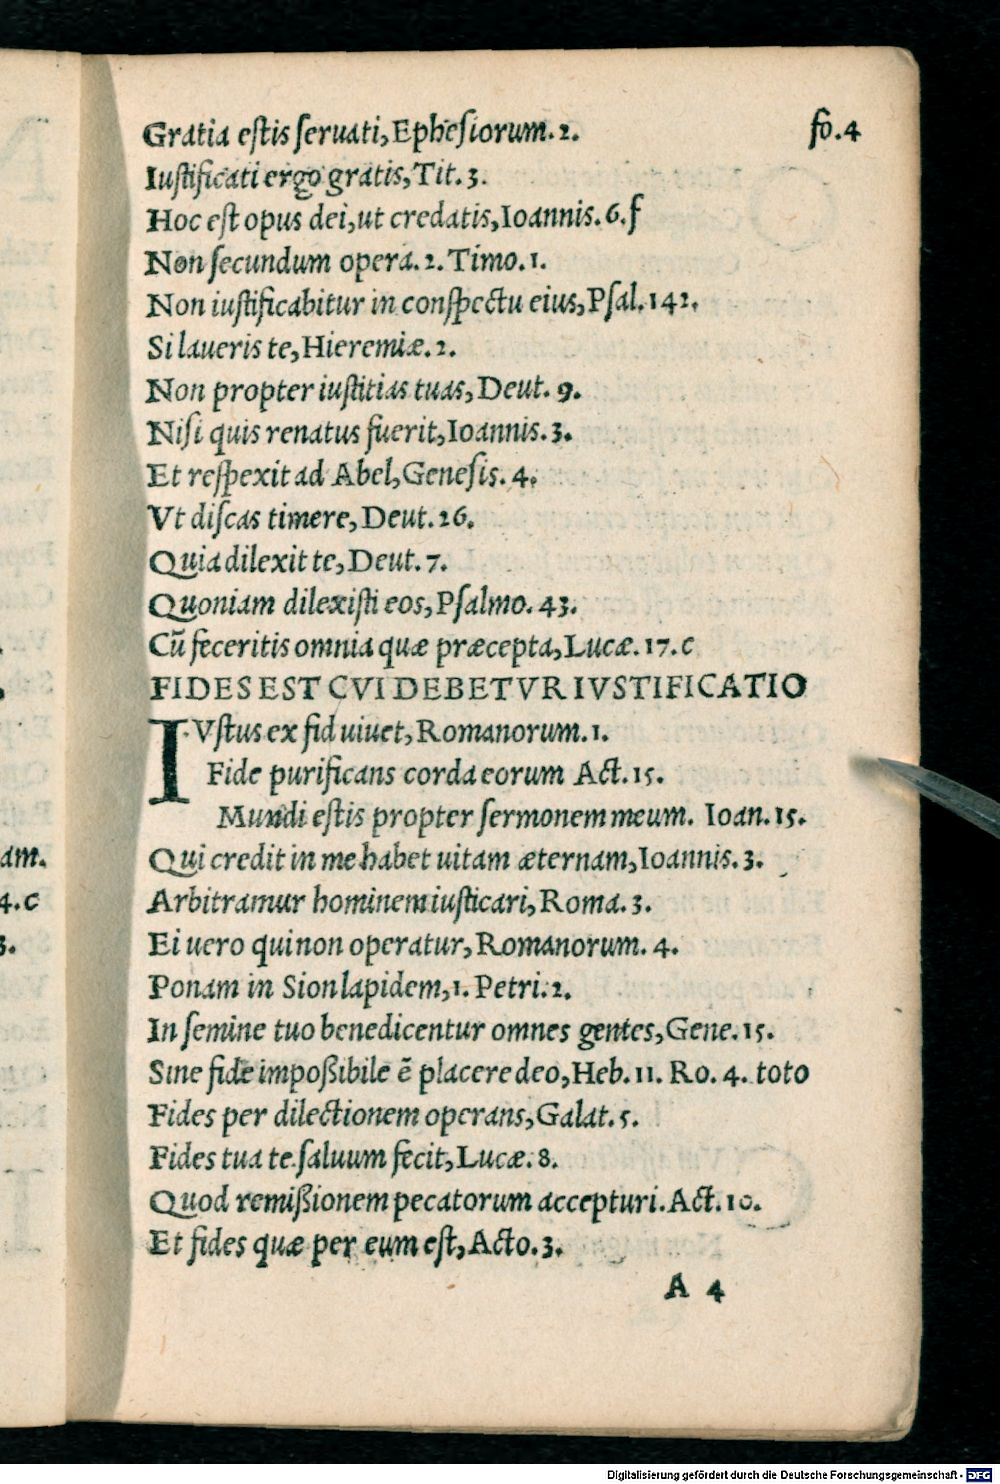 fo.4
Gratia estis seruati, Ephesiorum. 2.
Iustificati ergo gratis, Tit. 3.
Hoc est opus dei, ut credatis, Ioannis. 6. f
Non secundum opera. 2. Timo. 1.
Non iustificabitur in conspectu eius, Psal. 142.
Si laueris te, Hieremiæ. 2.
Non propter iustitias tuas, Deut. 9.
Nisi quis renatus fuerit, Ioannis. 3.
Et respexit ad Abel, Genesis. 4.
Vt discas timere, Deut. 26.
Quia dilexit te, Deut. 7.
Quoniam dilexisti eos, Psalmo. 43.
Cū feceritis omnia quæ præcepta, Lucæ. 17. c
FIDES EST CVI DEBETVR IVSTIFICATIO
IVstus ex fid uiuet, Romanorum. 1.
Fide purificans corda eorum Act. 15.
Mundi estis propter sermonem meum. Ioan. 15.
Qui credit in me habet uitam æternam, Ioannis. 3.
Arbitramur hominem iusticari, Roma. 3.
Ei uero qui non operatur, Romanorum. 4.
Ponam in Sion lapidem, 1. Petri. 2.
In semine tuo benedicentur omnes gentes, Gene. 15.
Sine fide impoßibile ē placere deo, Heb. 11. Ro. 4. toto
Fides per dilectionem operans, Galat. 5.
Fides tua te saluum fecit, Lucæ. 8.
Quod remißionem pecatorum accepturi. Act. 10.
Et fides quæ per eum est, Acto. 3.
A 4
am.
4. c
3.
Digitalisierung gefördert durch die Deutsche Forschungsgemeinschaft - DFG